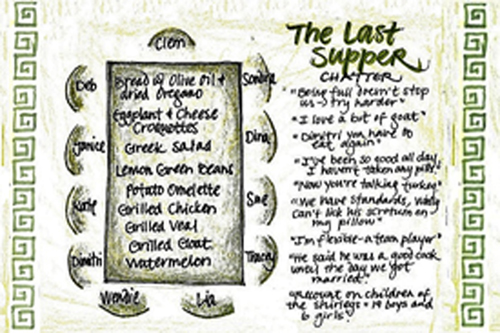 Clem
Deb
Janice
Katie
Dimitri
Wendie
Lia
Sandra
Dina
Sue
Tracey
Bread & Olive Oil &
dried Oregano
Eggplant & Cheese
Croquettes
Greek Salad
Lemon Green Beans
Potato Omelette
Grilled Chicken
Grilled Veal
Grilled Goat
Watermelon
The Last
Supper
CHATTER
"Being full doesn't stop
us → try harder"
"I love a bit of goat"
"Dimitri you have to
eat again"
"I've been so good all day,
I haven't taken any pills"
"Now you're talking turkey"
"We have standards,
can't like his scrotum on
my pillow"
"I'm flexible - a team player"
"He said he was a good cook
until the day we got
married."
"Recount on children of
the = 19 boys and
6 girls"